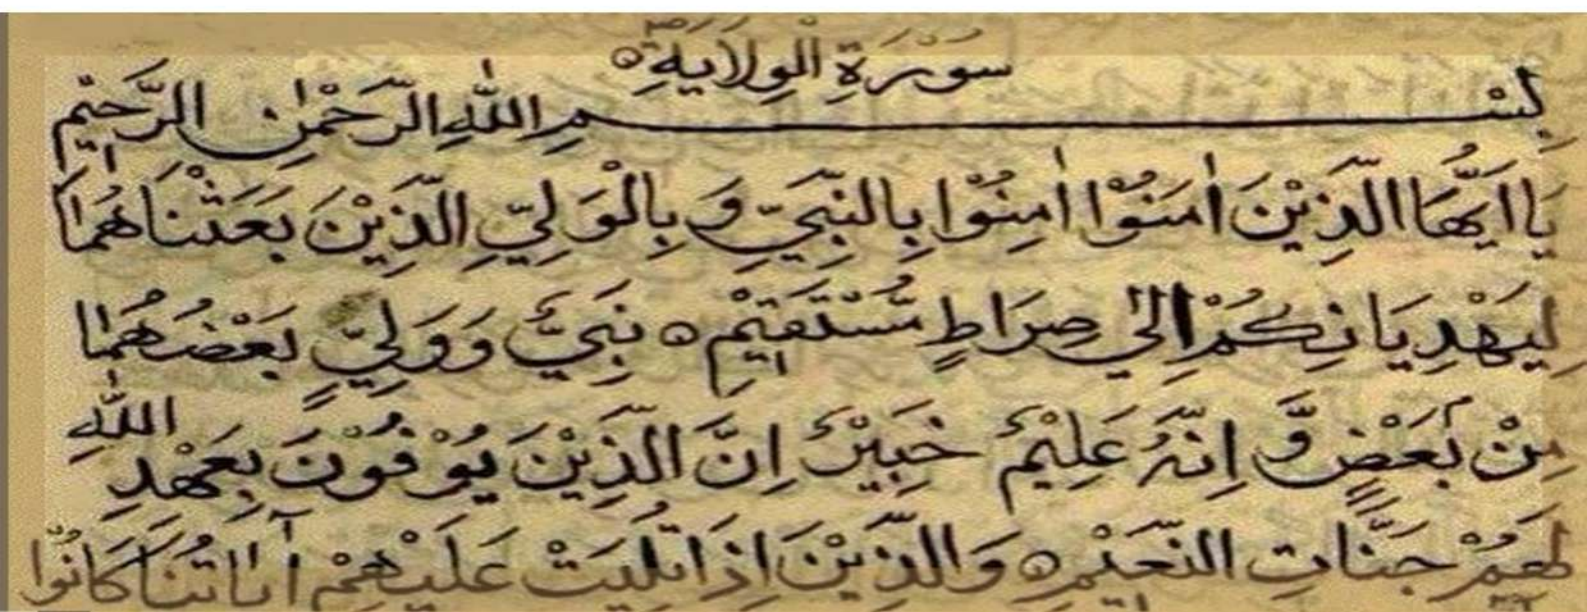 سُوْرَةِ الْوِلَايَةِ
بِسْمِ اللّٰهِ الرَّحْمٰنِ الرَّحِيْمِ
يَااَيُّهَا الَّذِيْنَ اٰمَنُوْا اٰمِنُوْا بِالنَّبِيِّ وَ بِالْوَلِيِّ الَّذِيْنَ بَعَثْنَاهُمَا
لِيَهْدِيَانِكُمْ اِلىٰ صِرَاطٍ مُّسْتَقِيْمٍ ۝ نَبِيٌّ وَوَلِيٌّ بَعْضُهُمَا
مِنْ بَعْضٍ وَّ اِنَّهُ عَلِيْمٌ خَبِيْرٌ اِنَّ الَّذِيْنَ يُوْفُوْنَ بِعَهْدِ اللّٰهِ
لَهُمْ جَنَّاتِ النَّعِيْمِ ۝ وَالَّذِيْنَ اِذَا تُلِيَتْ عَلَيْهِمْ آيَاتُنَا كَانُوْا